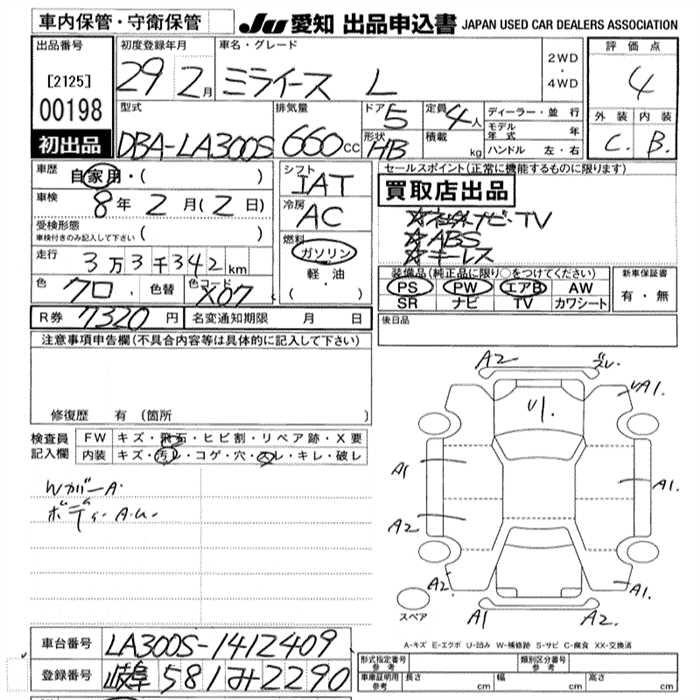 車内保管・守衛保管
JU 愛知 出品申込書 JAPAN USED CAR DEALERS ASSOCIATION
出品番号 [2125] 00198 初出品
初度登録年月 29 2月
車名・グレード ミライース L
2WD ・ 4WD
評価点 4
外装 C. 内装 B.
型式 DBA-LA300S
排気量 660cc
ドア 5 形状 HB
定員 4人 積載 kg
ディーラー・並行
モデル年式 年
ハンドル 左・右
車歴 自家用・( )
車検 8年 2月(2日)
受検形態 車検付きのみ記入して下さい ( )
走行 3万3千342km
色 クロ 色替 色コード X07
シフト IAT
冷房 AC
燃料 ガソリン
軽・油
・( )
セールスポイント(正常に機能するものに限ります)
買取店出品
☆社外ナビ・TV
☆ABS
☆キーレス
装備品(純正品に限り○をつけてください)
PS PW エアB AW
SR ナビ TV カワシート
新車保証書 有・無
R券 7320円 名変通知期限 月 日
後日品
注意事項申告欄(不具合内容等は具体的に記入して下さい)
修復歴 有 (箇所 )
検査員記入欄
FW キズ・飛石・ヒビ割・リペア跡・X要
内装 キズ・汚レ・コゲ・穴・スレ・キレ・破レ
Wカバー A.
ボディ. A.U.
A2 ズレ.
A1.
U1.
A1 A1.
A2
A2. A1.
A1 A2.
スペア
A-キズ E-エクボ U-凹み W-補修跡 S-サビ C-腐食 XX-交換済
車台番号 LA300S-1412409
登録番号 岐阜 581 み 2290
形式指定番号 参考 類別区分番号 参考
車庫証明用 参考 長さ cm 幅 cm 高さ cm